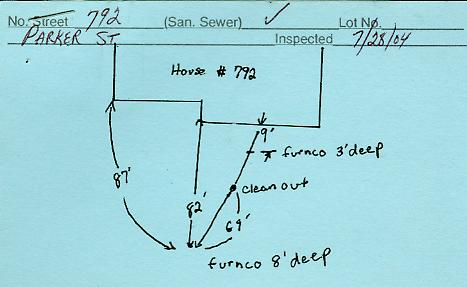 No. Street 792 (San. Sewer) ✓ Lot No.
PARKER ST Inspected 7/28/04
House # 792
9'
furnco 3' deep
87'
cleanout
82'
69'
furnco 8' deep